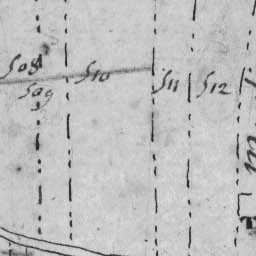 508
509
510
511
512